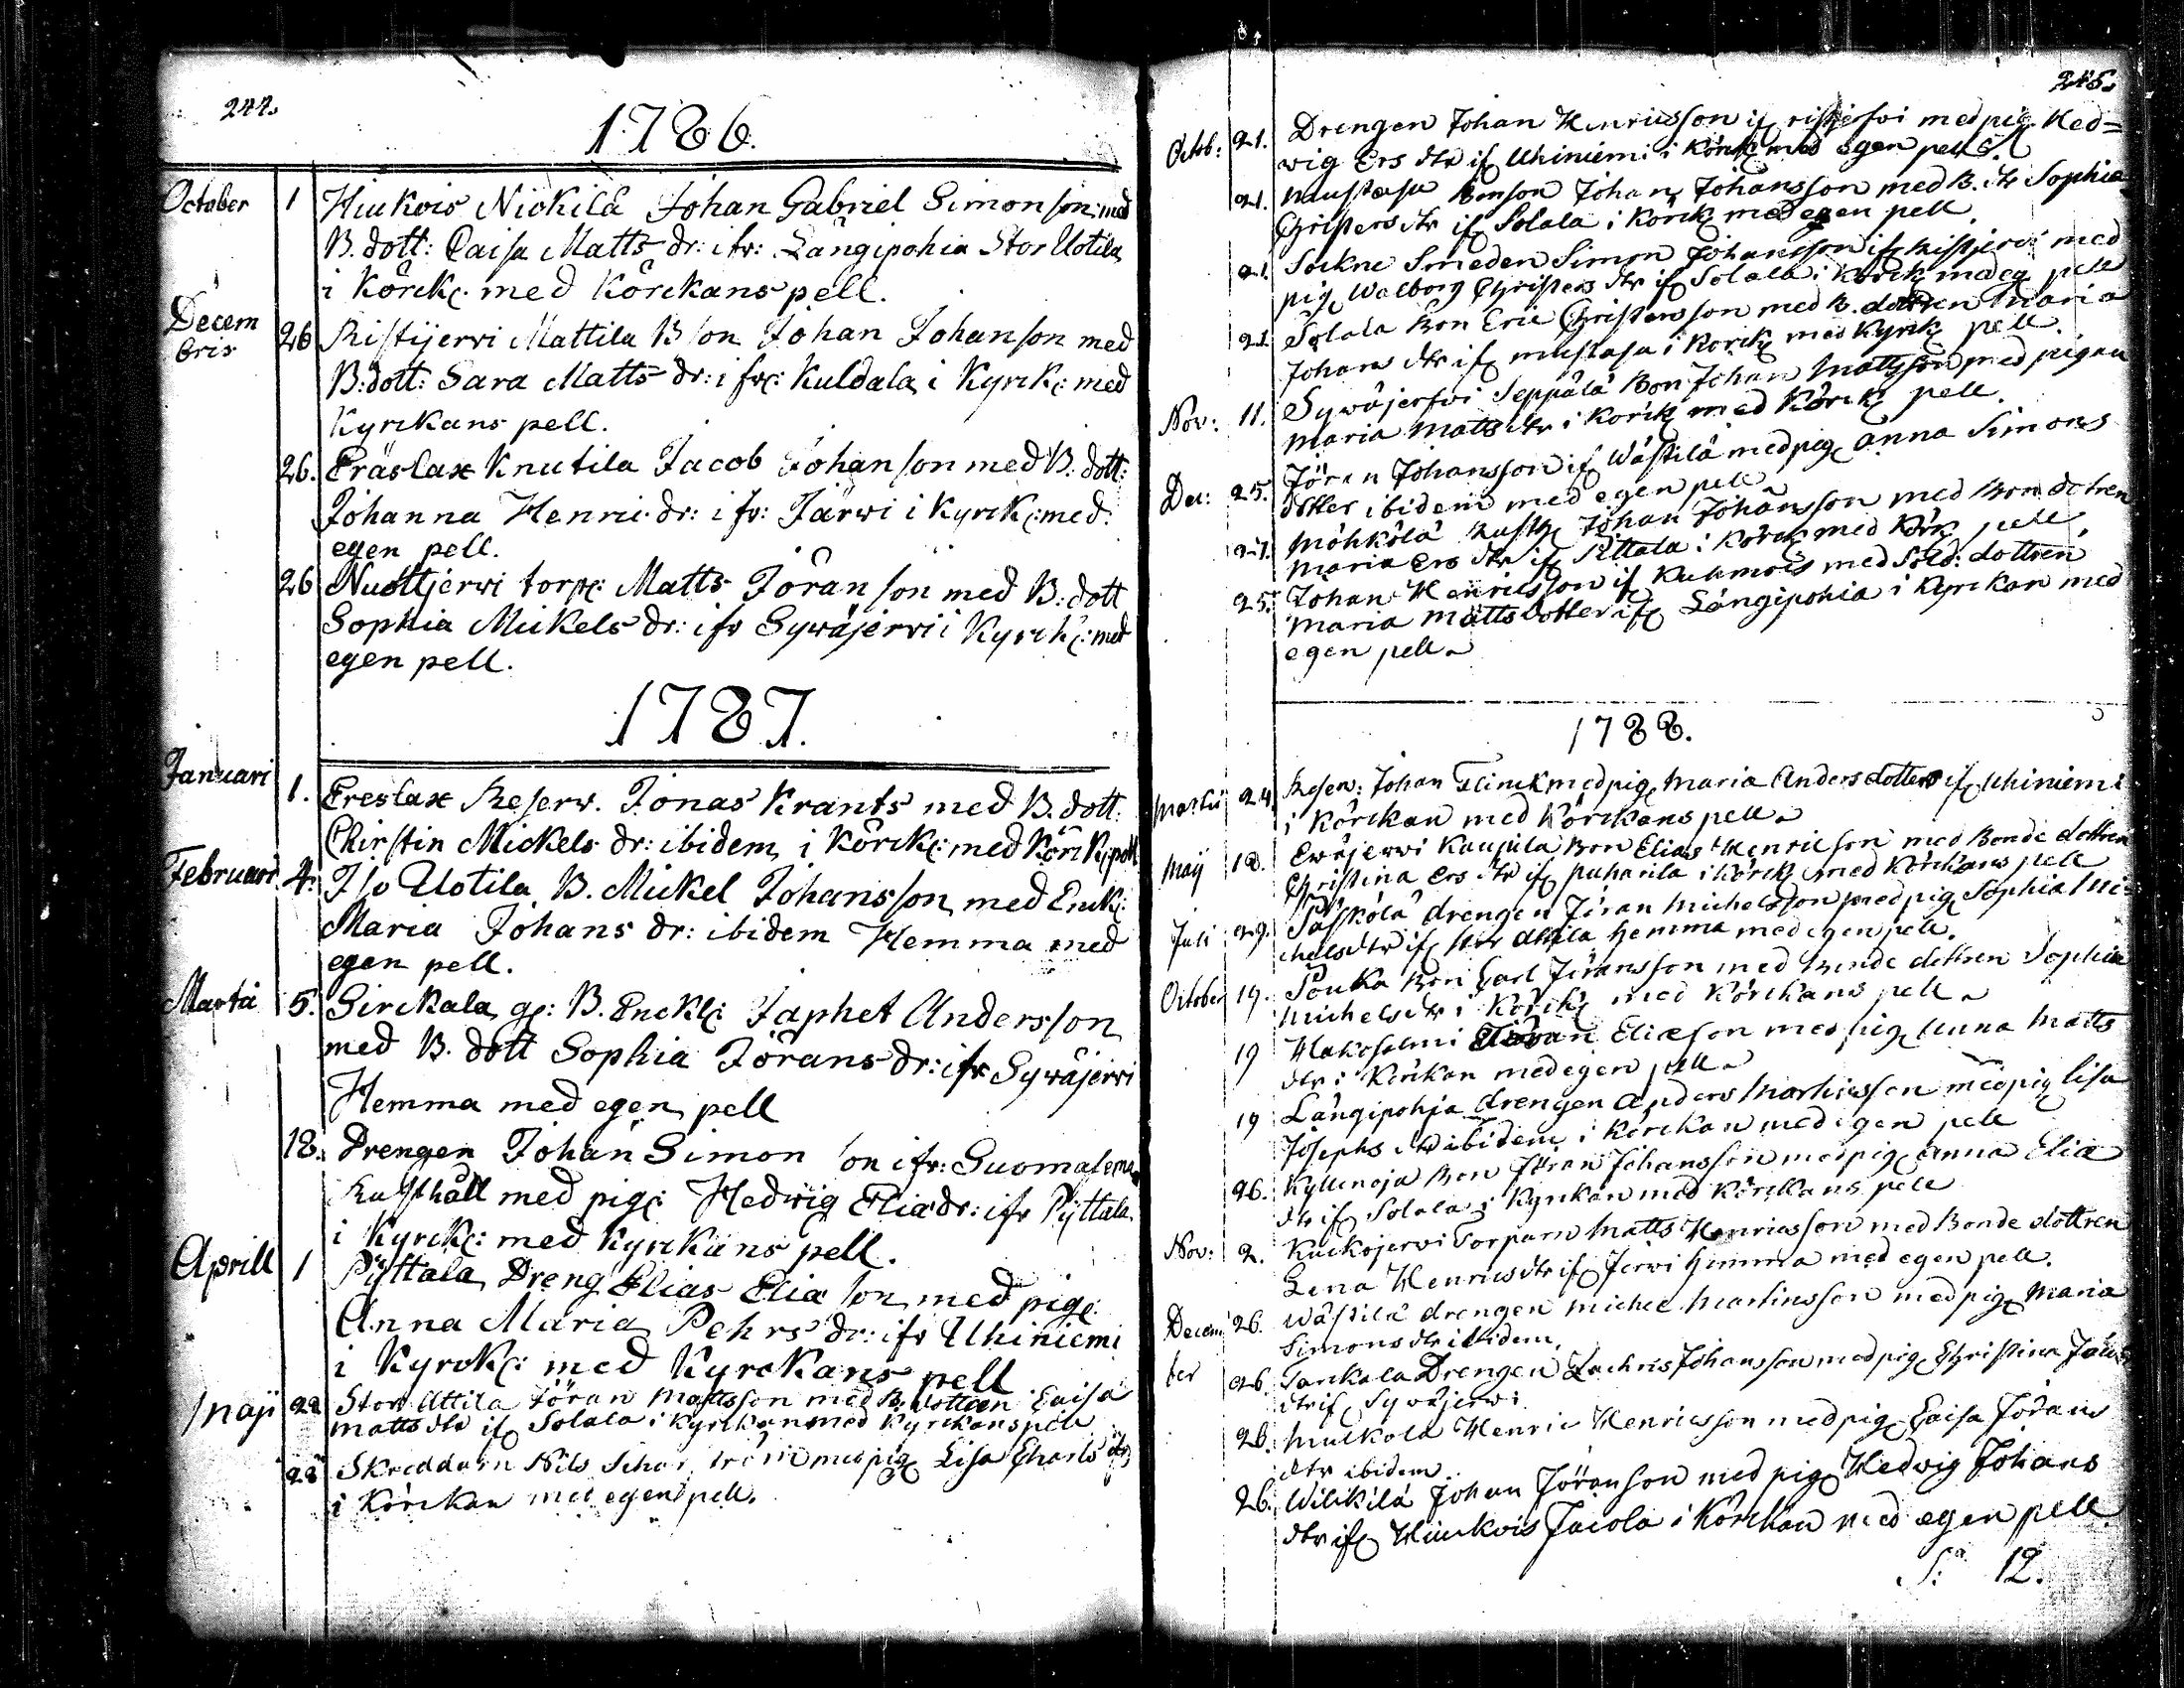 244.
1786.
October 1 Hiukois Nickilä Johan Gabriel Simonson med
B. dott: Caisa Matts dr: ifr: Långipohia Stor Uotila
i Körck: med Körckans pell.
Decem
bris
26 Ristijerwi Mattila B son Johan Johanson med
B: dott: Sara Matts dr: ifr: Kuldala i Kyrck: med
Kyrckans pell.
26. Eräslax Knutila Jacob Johanson med B: dott:
Johanna Henric dr: ifr: Järwi i Kyrck: med
egen pell.
26 Nuottjerwi torp: Matts Jöranson med B: dott
Sophia Mickels dr: ifr Sywäjerwi i Kyrck: med
egen pell.
1787.
Januari 1. Ereslax Reserv. Jonas Krants med B. dott.
Chirstin Mickels dr: ibidem i Körck: med Körck: pell
Februari 4. Iso Uotila B. Mickel Johansson med Enck:
Maria Johans dr: ibidem Hemma med
egen pell.
Martii 5. Sirckala g: B. Enckl: Japhet Andersson
med B. dott Sophia Jörans dr: ifr Sywäjerwi
Hemma med egen pell
18. Drengen Johan Simonson ifr: Suomasema
Rusthåll med pig: Hedwig Eliædr: ifr Pyttala
i Kyrck: med Kyrckans pell.
Aprill 1 Pyttala Dreng Elias Eliæson med pig:
Anna Maria Pehrs dr: ifr Uhiniemi
i Kyrck: med Kyrckans pell
Maji 22 Stor Attila Jöran Mattsson med B: dottren Caisa
Matts dtr if Solala i Kyrkan med Kyrckans pell
28 Skreddarn Nils med pig Lisa Charls dtr
i Körckan med egen pell.
245.
Octob: 21. Drengen Johan Henricsson if ristjerfwi med pig. Hed=
wig Ers dtr if Uhiniemi i Körck med egen pell.
21. Mustasa Bonson Johan Johansson med B. dtr Sophia
Christers dtr if Solala i Körck med egen pell.
21. Sockne Smeden Simon Johansson if Ristjerwi med
pig Walborg Christers dtr if Solala i Körck med eg pell
21. Solala Bon Eric Christersson med B. dottren Maria
Johans dtr if Mustasa i Körck med Kyrk pell.
Nov: 11. Sywäjerfwi Seppälä Bon Johan Mattsson med pigan
Maria Matts dtr i Körck med Körck pell.
Dec: 25. Jöran Johansson if Wästilä med pig Anna Simons
dotter ibidem med egen pell
27. Möhkölä Rusth Johan Johansson med Bon dottren
Maria Ers dtr if Pittala i Körck med Körk pell.
25. Johan Henricsson if Kuhmois med Sold: dottren
Maria Matts dotter if Långipohia i Kyrckan med
egen pell
1788.
Martii 24 Reserv: Johan Flinck med pig Maria Anders dotter if Uhiniemi
i Körckan med Körckans pell
Maij 18. Ewäjerwi Kaupila Bon Elias Henricson med Bonde dottren
Christina Ers dtr if Puharila i Körck med Körckans pell
Juli 29. Päskölä drengen Jöran Michelsson med pig Sophia Mi=
chels dtr if Stor Attila hemma med egen pell.
October 19. Pouka Bon Carl Jöransson med Bonde dottren Sophia
Michels dtr i Körck med Körckans pell
19 Hakosalmi Jöran Eliæson med pig Anna Matts
dtr i Körckan med egen pell
19 Långipohja drengen Anders Martinsson med pig Lisa
Josephs dtr ibidem i Körckan med egen pell
26. Kyllenoja Bon Jöran Johansson med pig Anna Eliæ
dtr if Solala i Kyrckan med Körckans pell
Nov: 2. Kuckojerwi Torparn Matts Henricsson med Bonde dottren
Lena Henrics dtr if Jerwi hemma med egen pell.
Decem
ber
26. Wästilä drengen Michel Martinsson med pig Maria
Simons dtr ibidem.
26. Sarkala Drengen Zachris Johansson med pig Christina
dtr if Sywäjerwi
26. Muckola Henric Henricsson med pig Caisa Jörans
dtr ibidem
26. Wilckilä Johan Jöranson med pig Hedwig Johans
dtr if Hiuckois Jacola i Körckan med egen pell.
S:a 12.